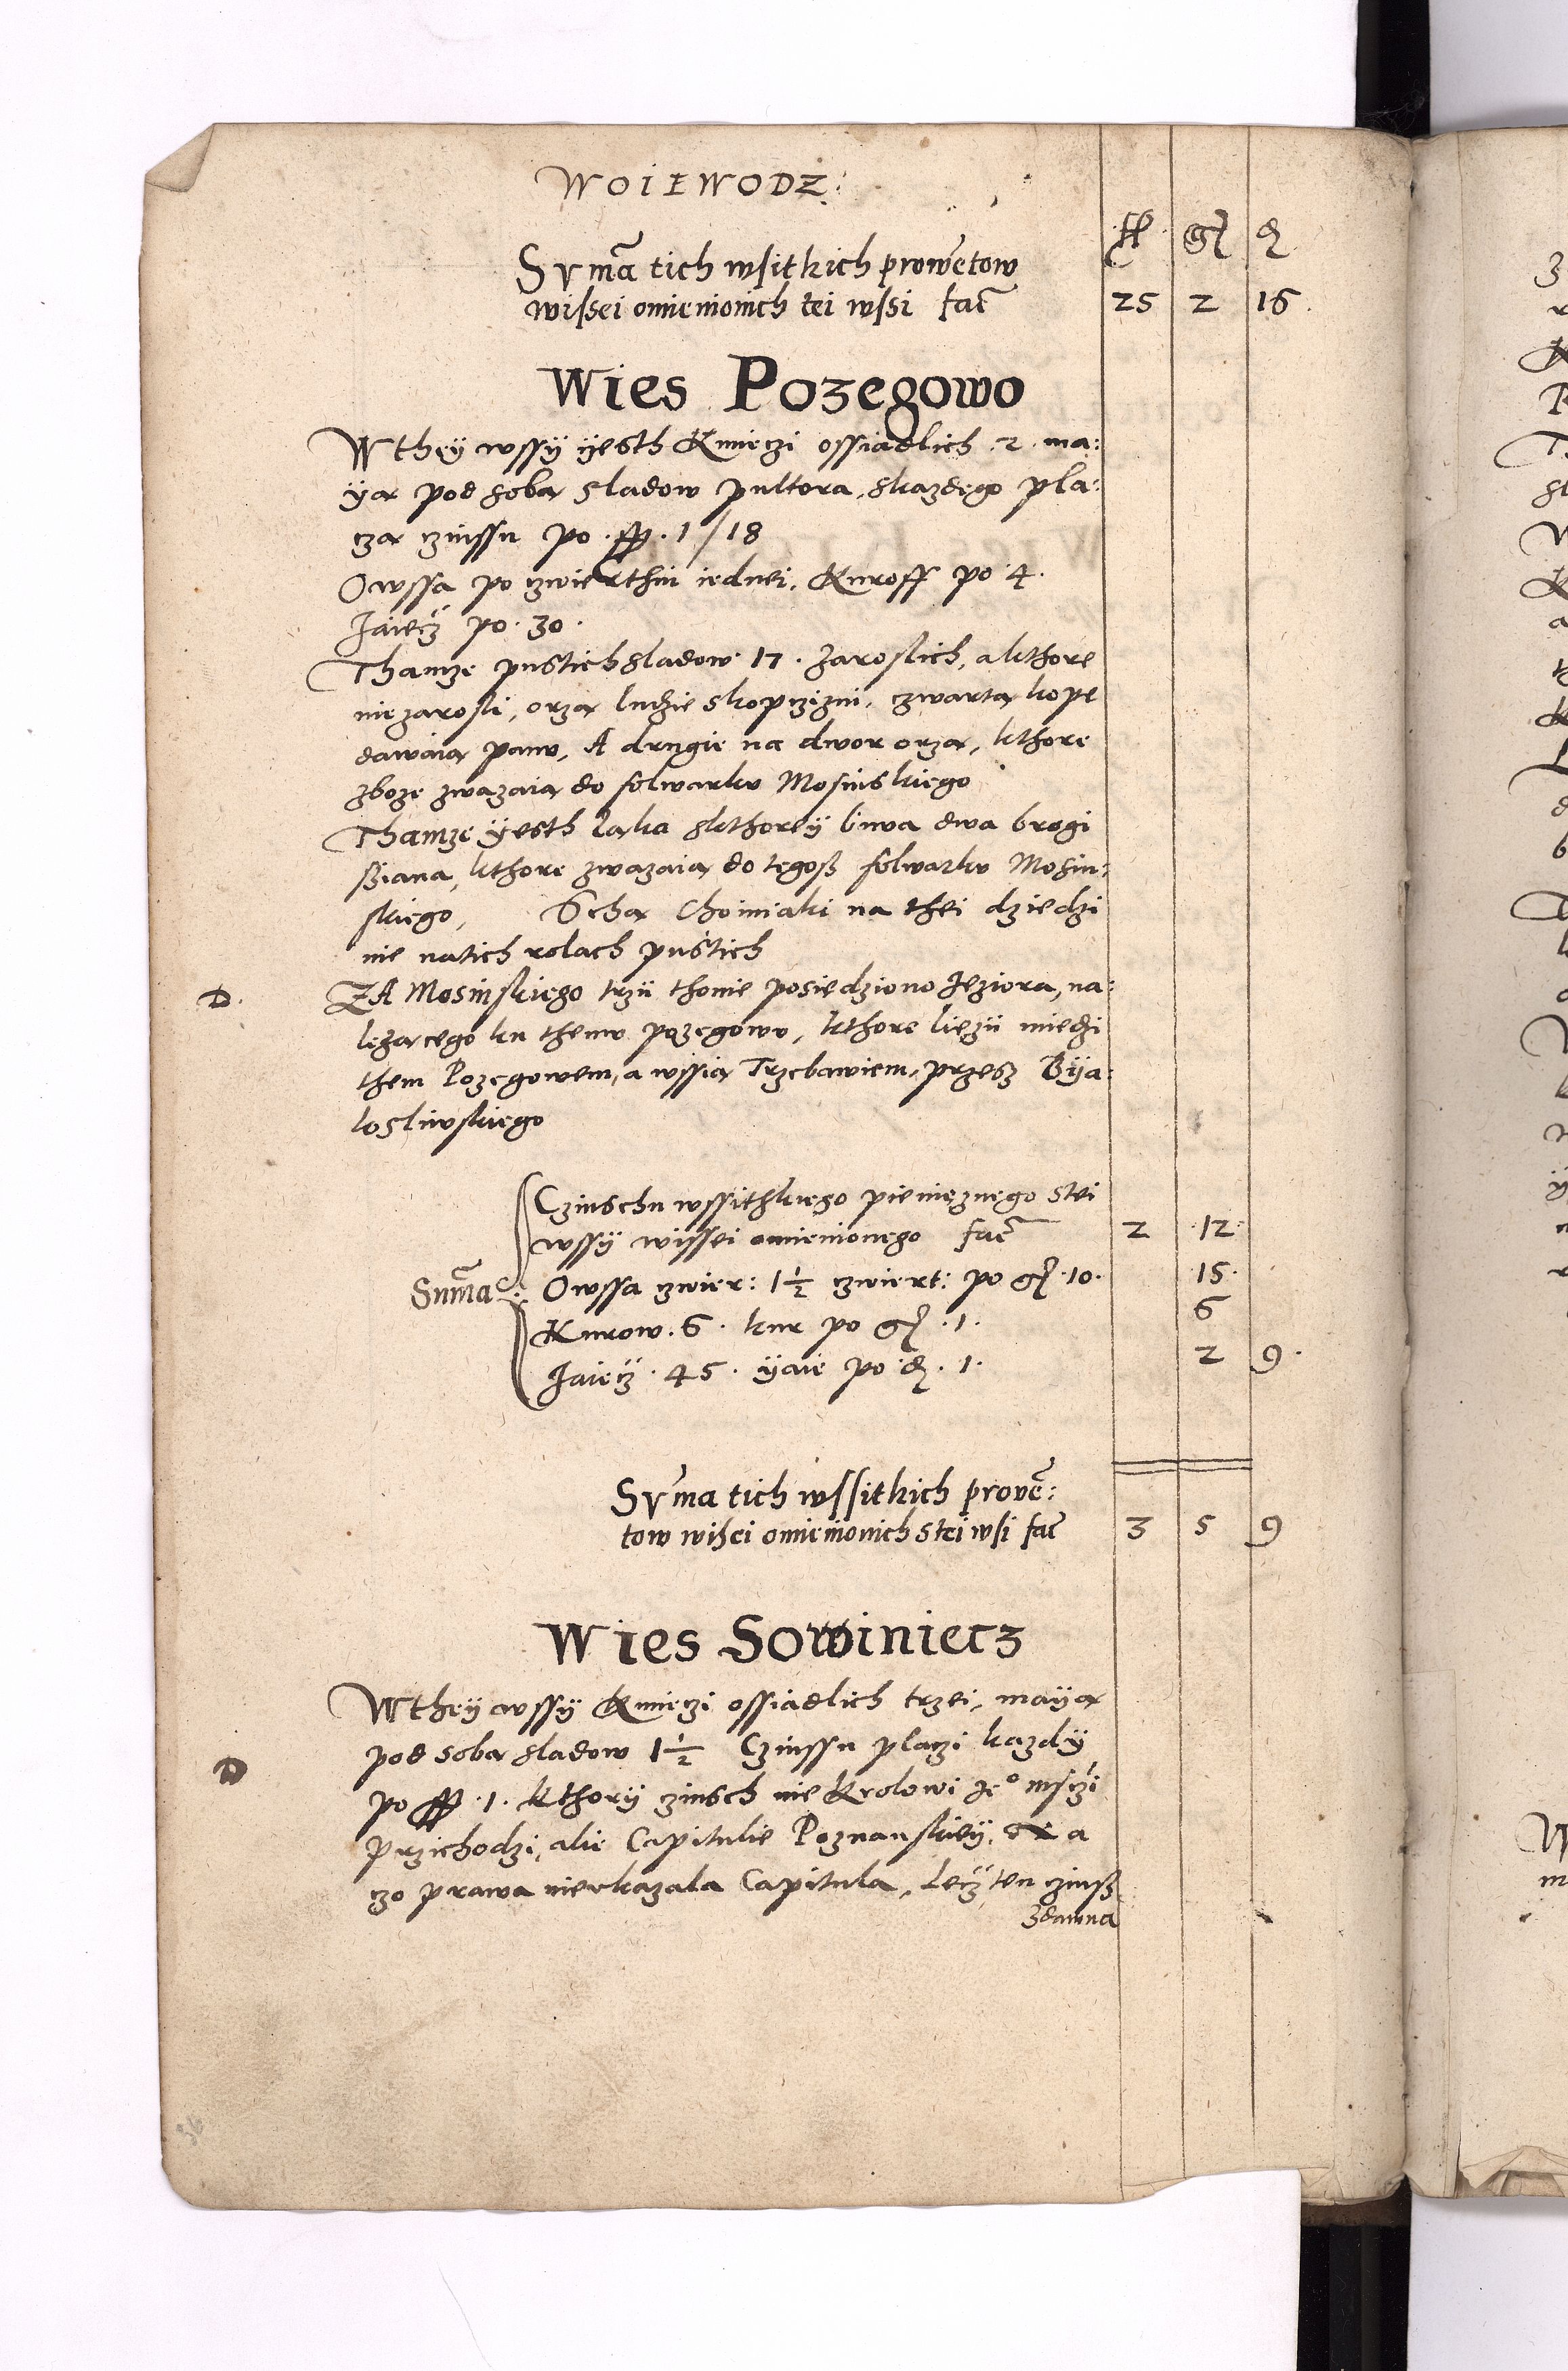 WOIEWODZ:
fl gr d
Suma tich wsitkich prowetow
wissei omienionich tei wssi facit 25 2 16
Wies Pozegowo
W they wssÿ ÿesth Kmieczi ossiadlich 2 ma:
ÿa pod soba sladow pultora, skazdego pla:
cza czinssu po 1/18
Owssa po czwierthni iednei, Kuroff po 4.
Jaiecz po 30.
Thamze pustich sladow 17. Zaroslich, a kthore
niezarosli, orza ludzie skopczizni, czwarta kope
dawaia panu, A drugie na dwor orza, kthore
zboze zwazaia do folwarku Mosinskiego
Thamze ÿesth laka skthoreÿ biwa dwa brogi
siana, kthore zwazaia do tegosz folwarku Mosin:
skiego, Scha Choiniaki na thei dziedzi
nie na tich rolach pustich
D. ZA Mosinskiego trzÿ thonie posiedziono Jeziora, na:
lezacego ku themu pozegowu, kthore liezÿ miedzi
them Pozegowem, a wssia Trzebawiem, przesz Bÿa:
losliwskiego
Czinschu wssithkiego pienieznego stei
wssÿ wissei omienionego facit 2 12
Suma: Owssa czwier: 1½ czwiert: po gr 10. 15.
Kurow. 6. kur po gr .1. 6
Jaiecz 45. ÿaie po d. 1. 2 9.
Suma tich wssitkich prove:
tow wisei omienionich stei wsi fact 3 5 9
Wies Sowiniecz
W theÿ wssÿ Kmieczi ossiadlich trzei, maÿa
pod soba sladow 1½ Czinssu placzi kazdÿ
D po 1. kthorÿ czinsch nie Krolowi Jeo msczi
przichodzi, alie Capitulie Poznanskieÿ, a
czo prawa nievkazala Capitula, Lecz ten czinsz
zdawna